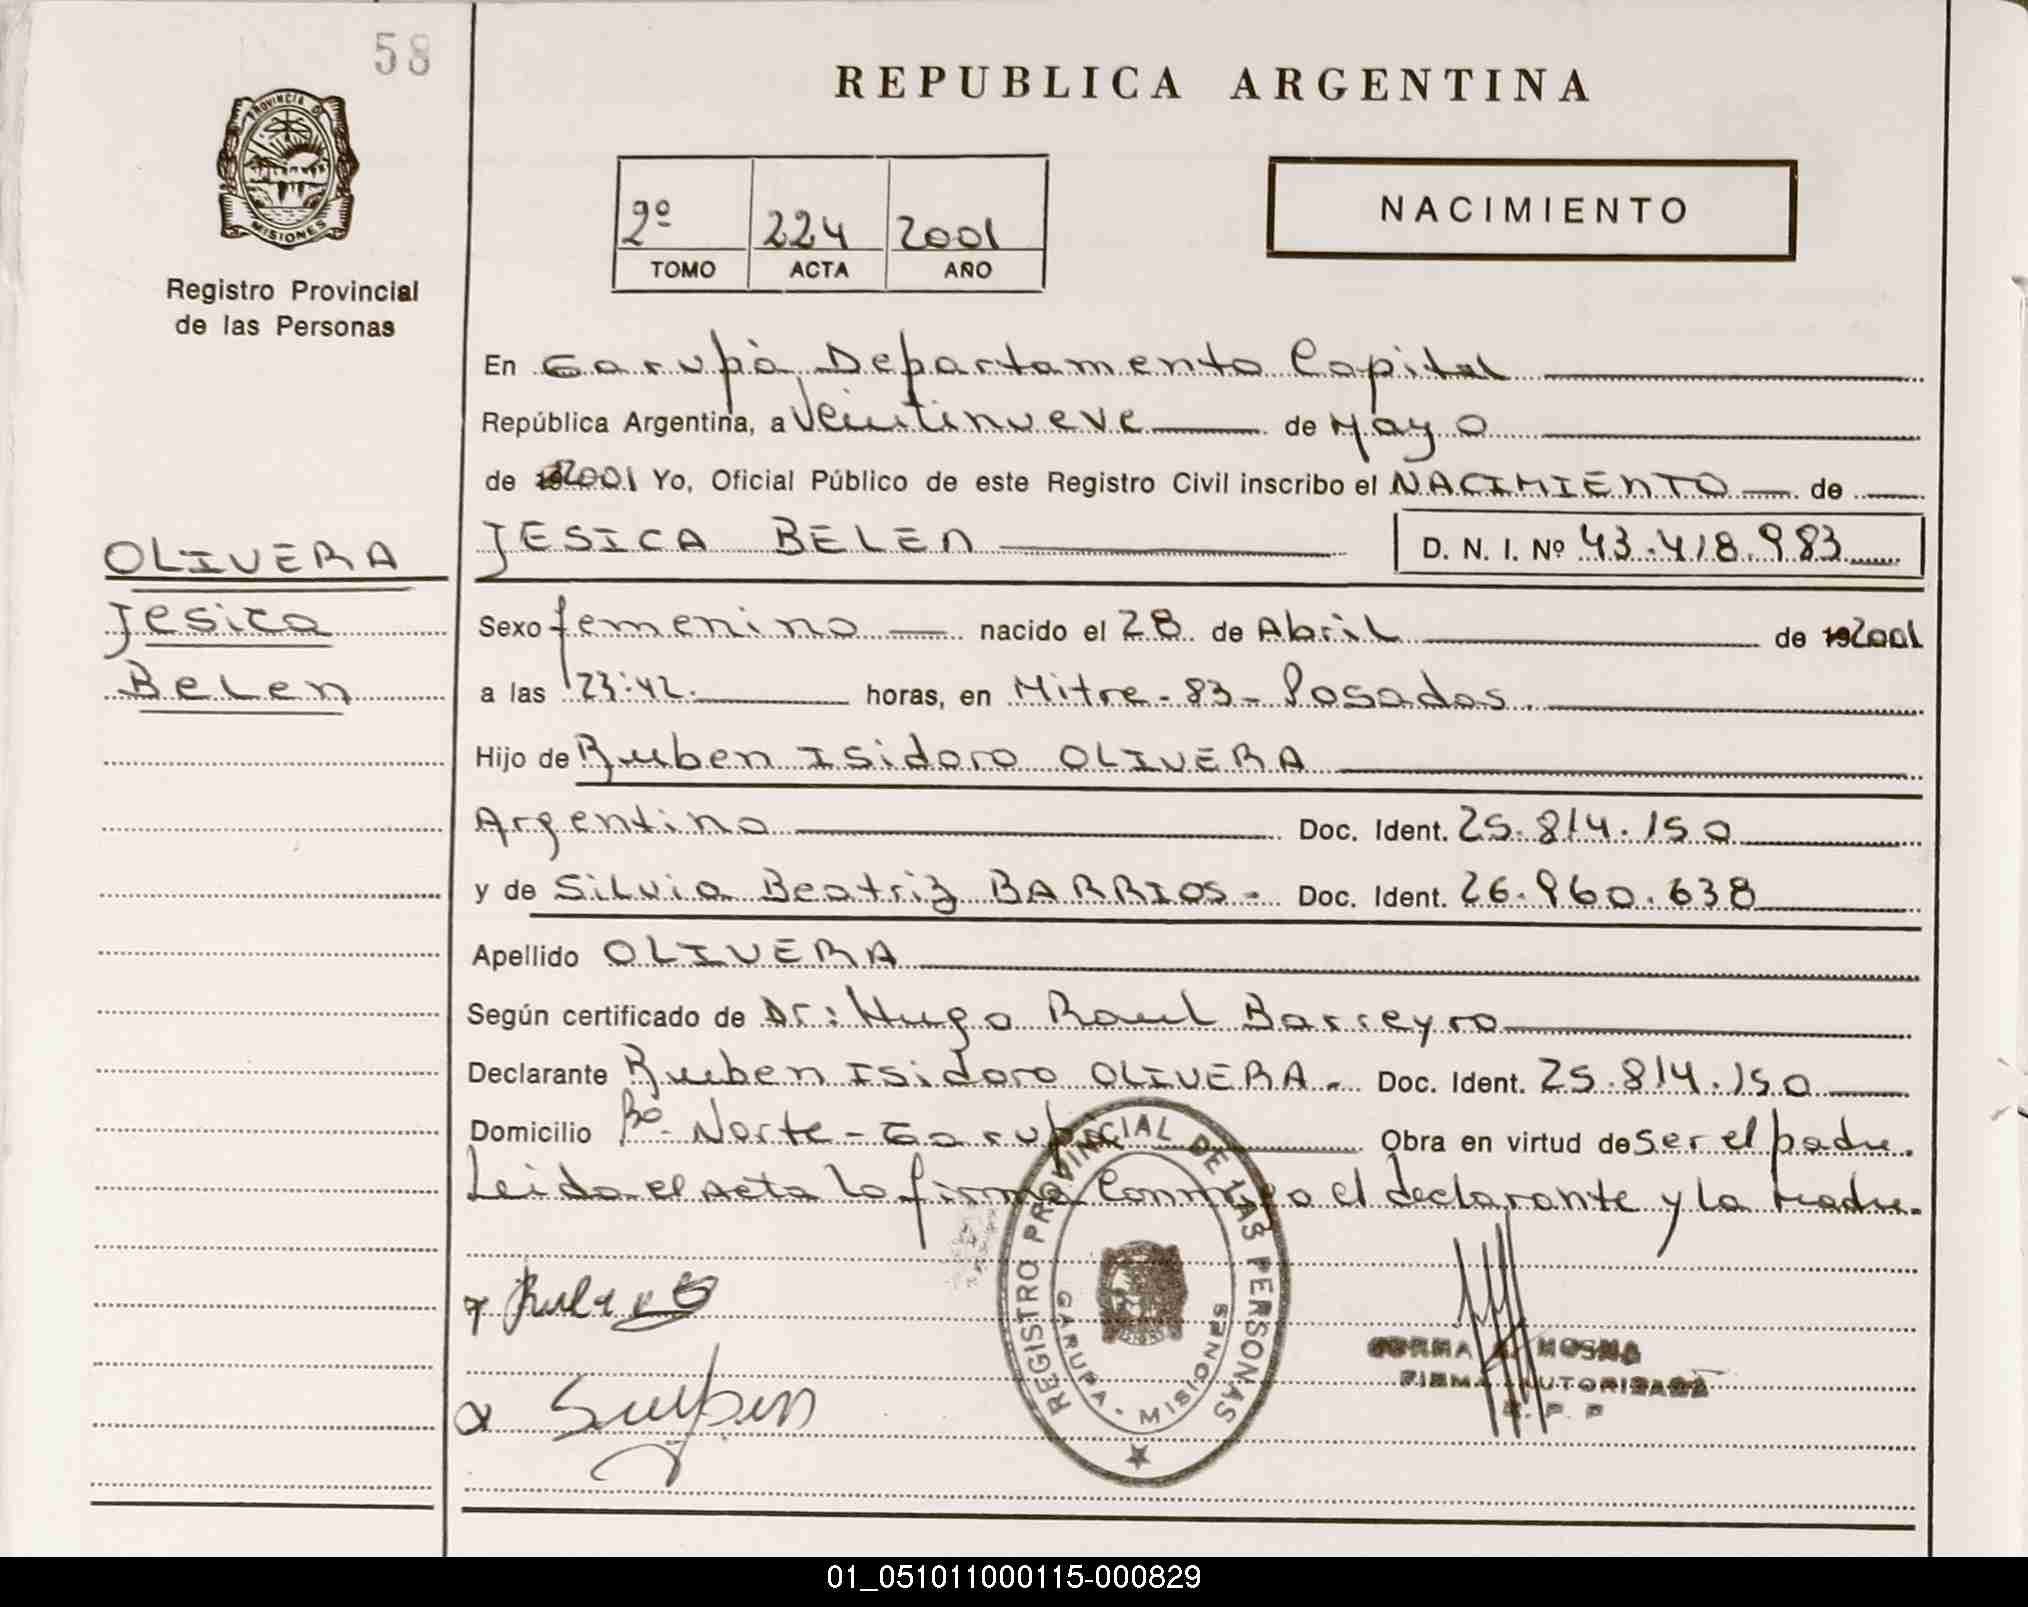 58
REPUBLICA ARGENTINA
PROVINCIA DE
MISIONES
Registro Provincial
de las Personas
2º 224 2001
TOMO ACTA AÑO
NACIMIENTO
En Garupà Departamento Capital
República Argentina, a Veintinueve de Mayo
de 2001 Yo, Oficial Público de este Registro Civil inscribo el NACIMIENTO de
OLIVERA
Jesica
Belen
JESICA BELEN D. N. I. Nº 43.418.983
Sexo femenino nacido el 28 de Abril de 192001
a las 23:42. horas, en Mitre - 83 - Posadas.
Hijo de Ruben Isidoro OLIVERA
Argentino Doc. Ident. 25.814.150
y de Silvia Beatriz BARRIOS - Doc. Ident. 26.960.638
Apellido OLIVERA
Según certificado de Dr: Hugo Raul Barreyro
Declarante Ruben Isidoro OLIVERA - Doc. Ident. 25.814.150
Domicilio Bº Norte - Garupà Obra en virtud de Ser el padre.
Leida el acta la firma Conmigo el declarante y la madre.
REGISTRO PROVINCIAL DE LAS PERSONAS
GARUPA - MISIONES
MOSNA
FIRMA AUTORIZADA
R. P. P
01_051011000115-000829